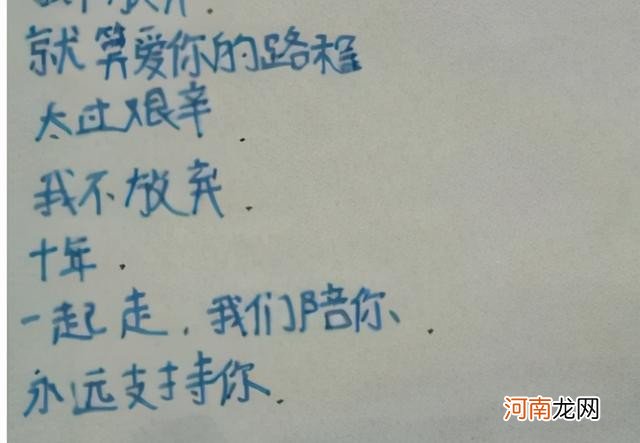 我不放弃.
就算爱你的路程
太过艰辛.
我不放弃.
十年.
一起走,我们陪你、.
永远支持你.
河南龙网